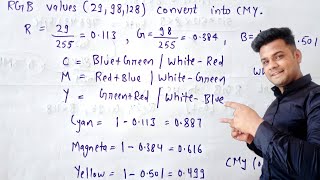 RGB values (29,98,128) convert into CMY.
R = 29/255 = 0.113, G = 98/255 = 0.384, B= .501
C = Blue+Green | White-Red
M = Red+Blue | White-Green
Y = Green+Red | White-Blue
Cyan = 1-0.113 = 0.887
Magneta = 1-0.384 = 0.616
Yellow = 1-0.501 = 0.499
CMY (0